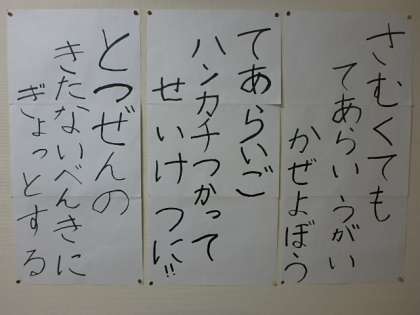 さむくても
てあらいうがい
かぜよぼう
てあらいご
ハンカチつかって
せいけつに!!
とつぜんの
きたないべんきに
ぎょっとする